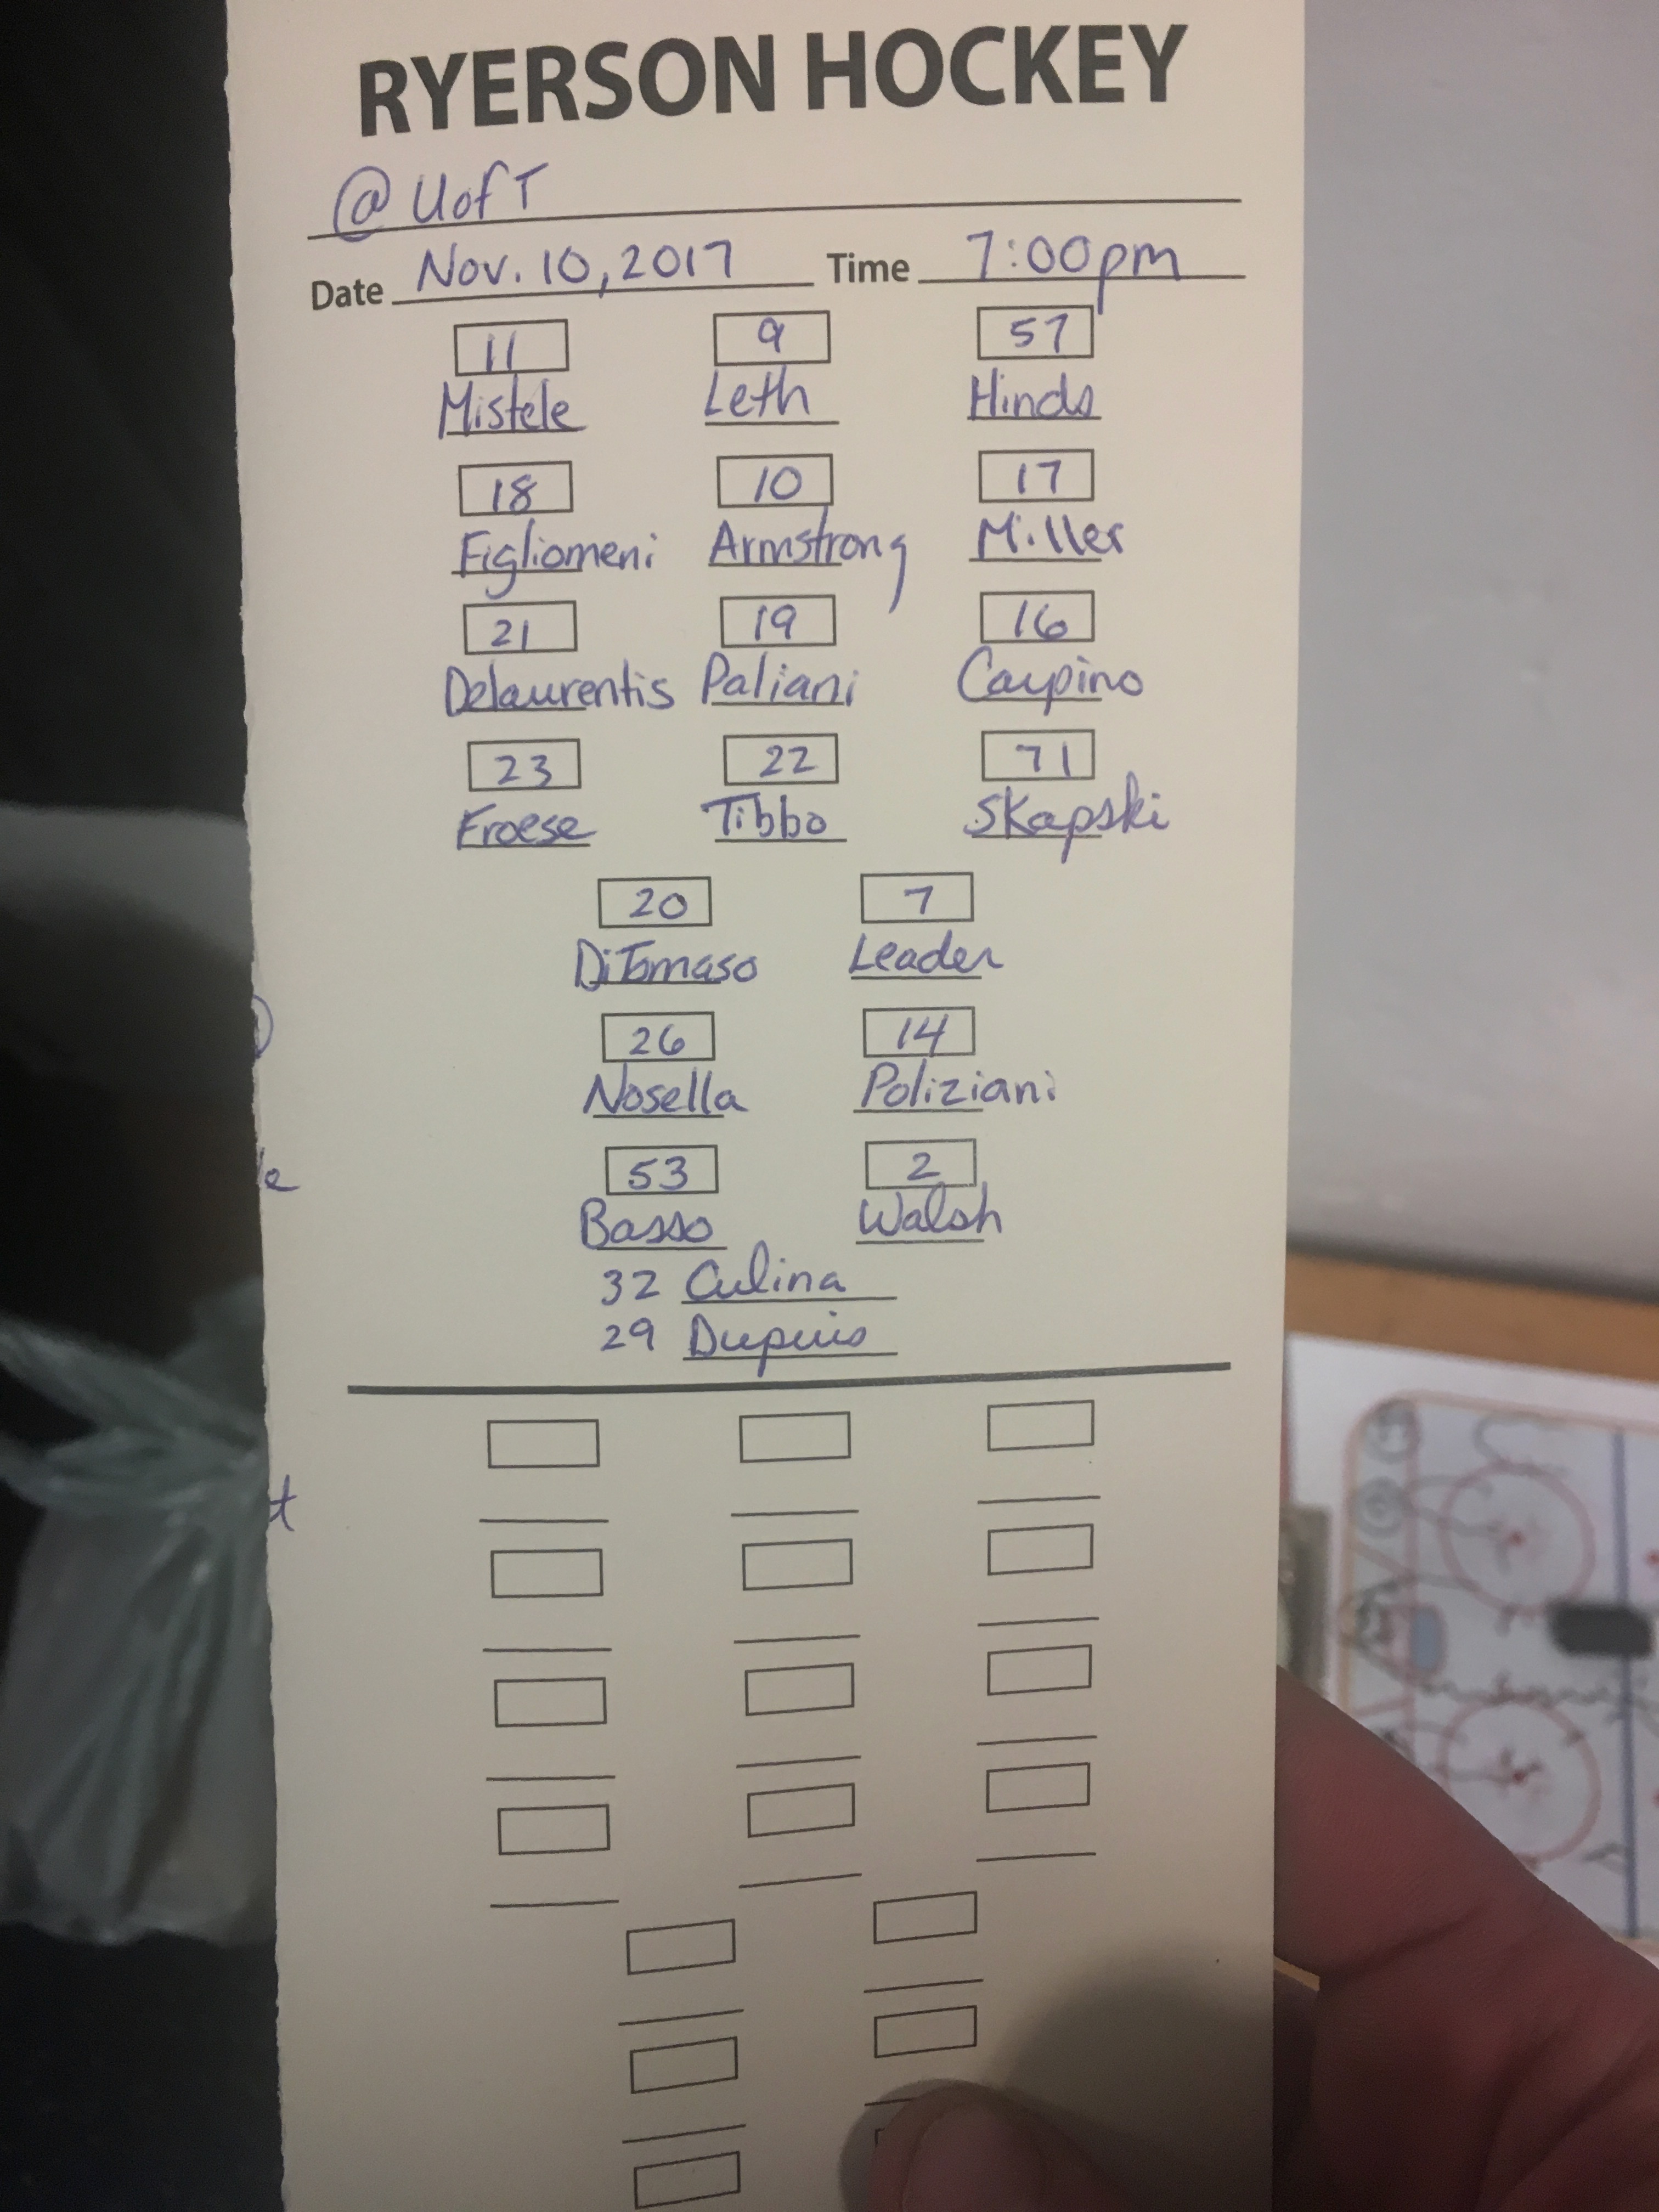 RYERSON HOCKEY
@ UofT
Date Nov. 10, 2017 Time 7:00pm
11 9 57
Mistele Leth Hinds
18 10 17
Figliomeni Armstrong Miller
21 19 16
Delaurentis Paliani Carpino
23 22 71
Froese Tibbo Skapski
20 7
DiTomaso Leader
26 14
Nosella Poliziani
53 2
Basso Walsh
32 Culina
29 Dupuis
e
t